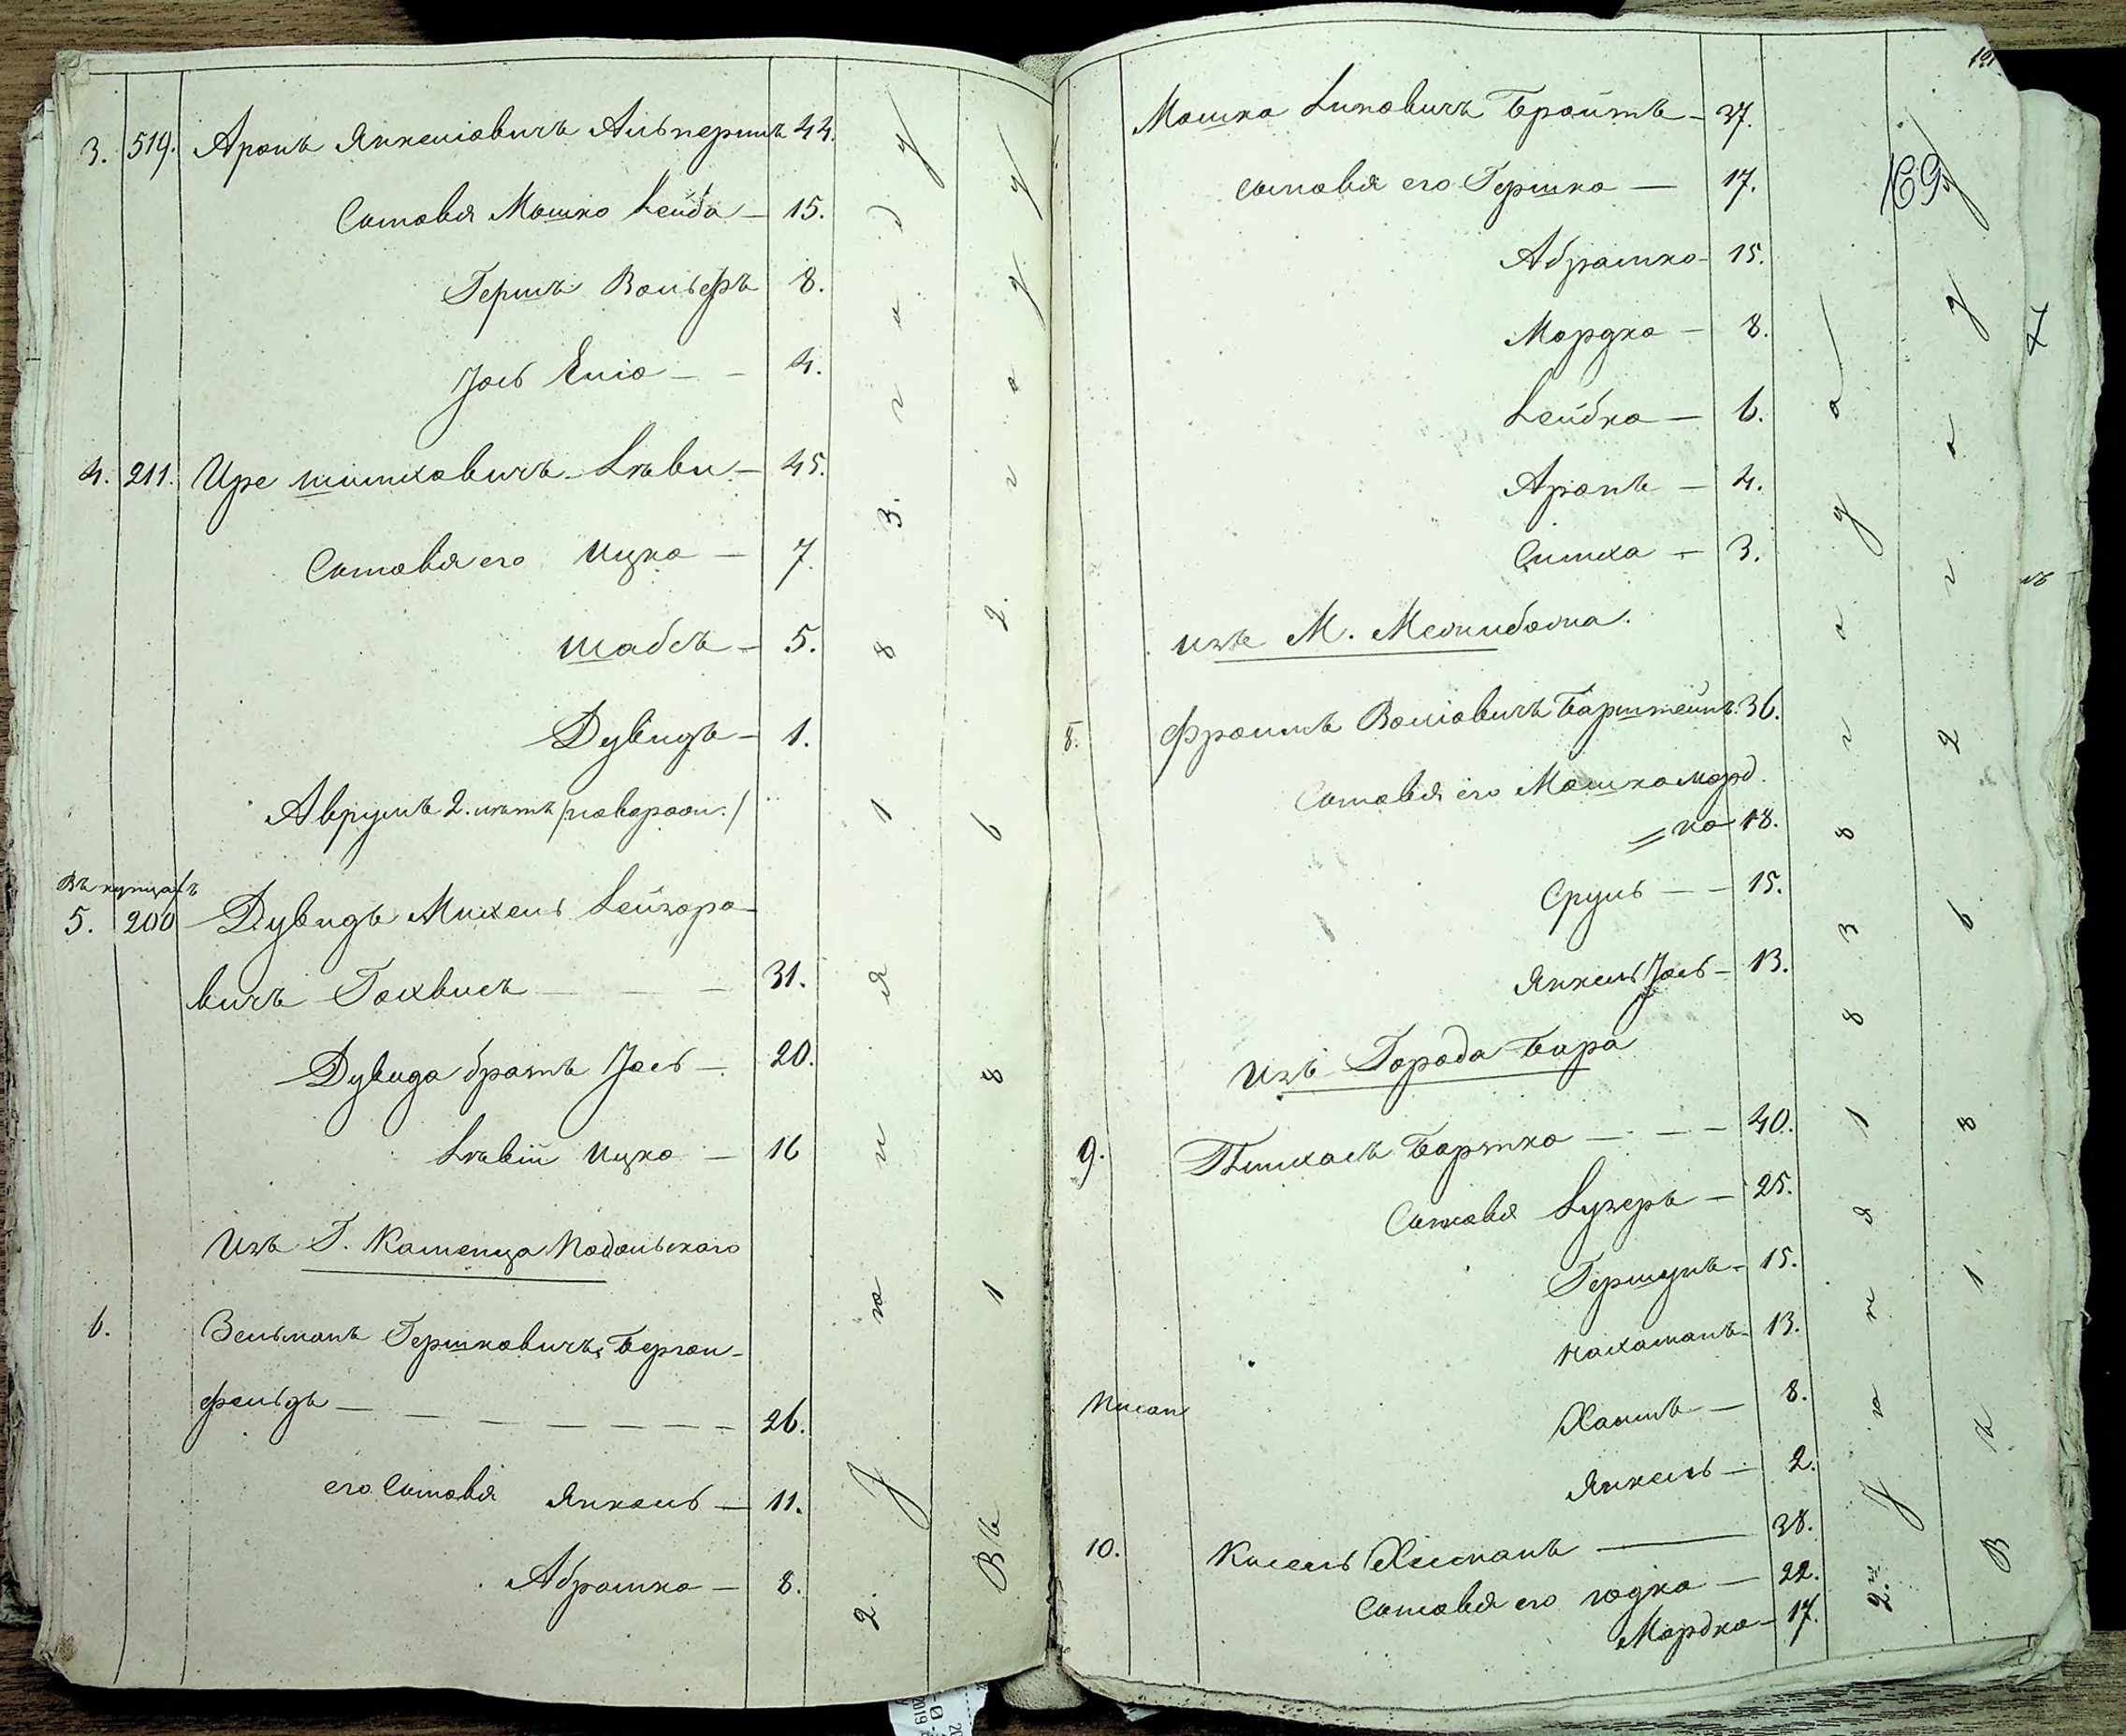 3. 519. Аронъ Янкеліовичъ Альперинъ 44.
Сыновья Мошко Лейба — 15.
Гершъ Вольфъ 8.
Іось Еліо — — 4.
4. 211. Ире Шимховичъ Лѣви — 45.
Сыновья его Ицко — 7.
Шабсъ — 5.
Дувидъ — 1.
Аврумъ 2. лѣтъ /новорожд./
Въ купцахъ
5. 200 Дувидъ Михель Лейзоро-
вичъ Гохвисъ — — 31.
Дувида братъ Іось — 20.
Лѣвій Ицко — 16
Изъ Г. Каменца Подольскаго
6. Зельманъ Гершковичъ Берген-
фельдъ — — — — — — — 26.
его Сыновья Янкель — 11.
Абрамко — 8.
2. Іюня 1838. года
Въ 1862. году
121.
Мошко Ицковичъ Бройтъ — 37.
сыновья его Гершко — 17.
Абрамко — 15.
Мордко — 8.
Лейбко — 6.
Аронъ — 4.
Симха — 3.
Изъ М. Межибожа.
8. Фроимъ Воліовичъ Баръштейнъ. 36.
Сыновья его Мошко Морд
= ко 18.
Сруль — — 15.
Янкель Іось — 13.
Изъ Города Бара
9. Пинхасъ Бортко — — — 40.
Сыновья Лузеръ — 25.
Гершунъ — 15.
Нахманъ — 13.
Писан
Хаимъ — 8.
Янкель — 2.
10. Кисель Хисманъ — 38.
Сыновья его Іодко — 22.
Мордко — 17.
2.го Іюня 1838 года
Въ 1862 году